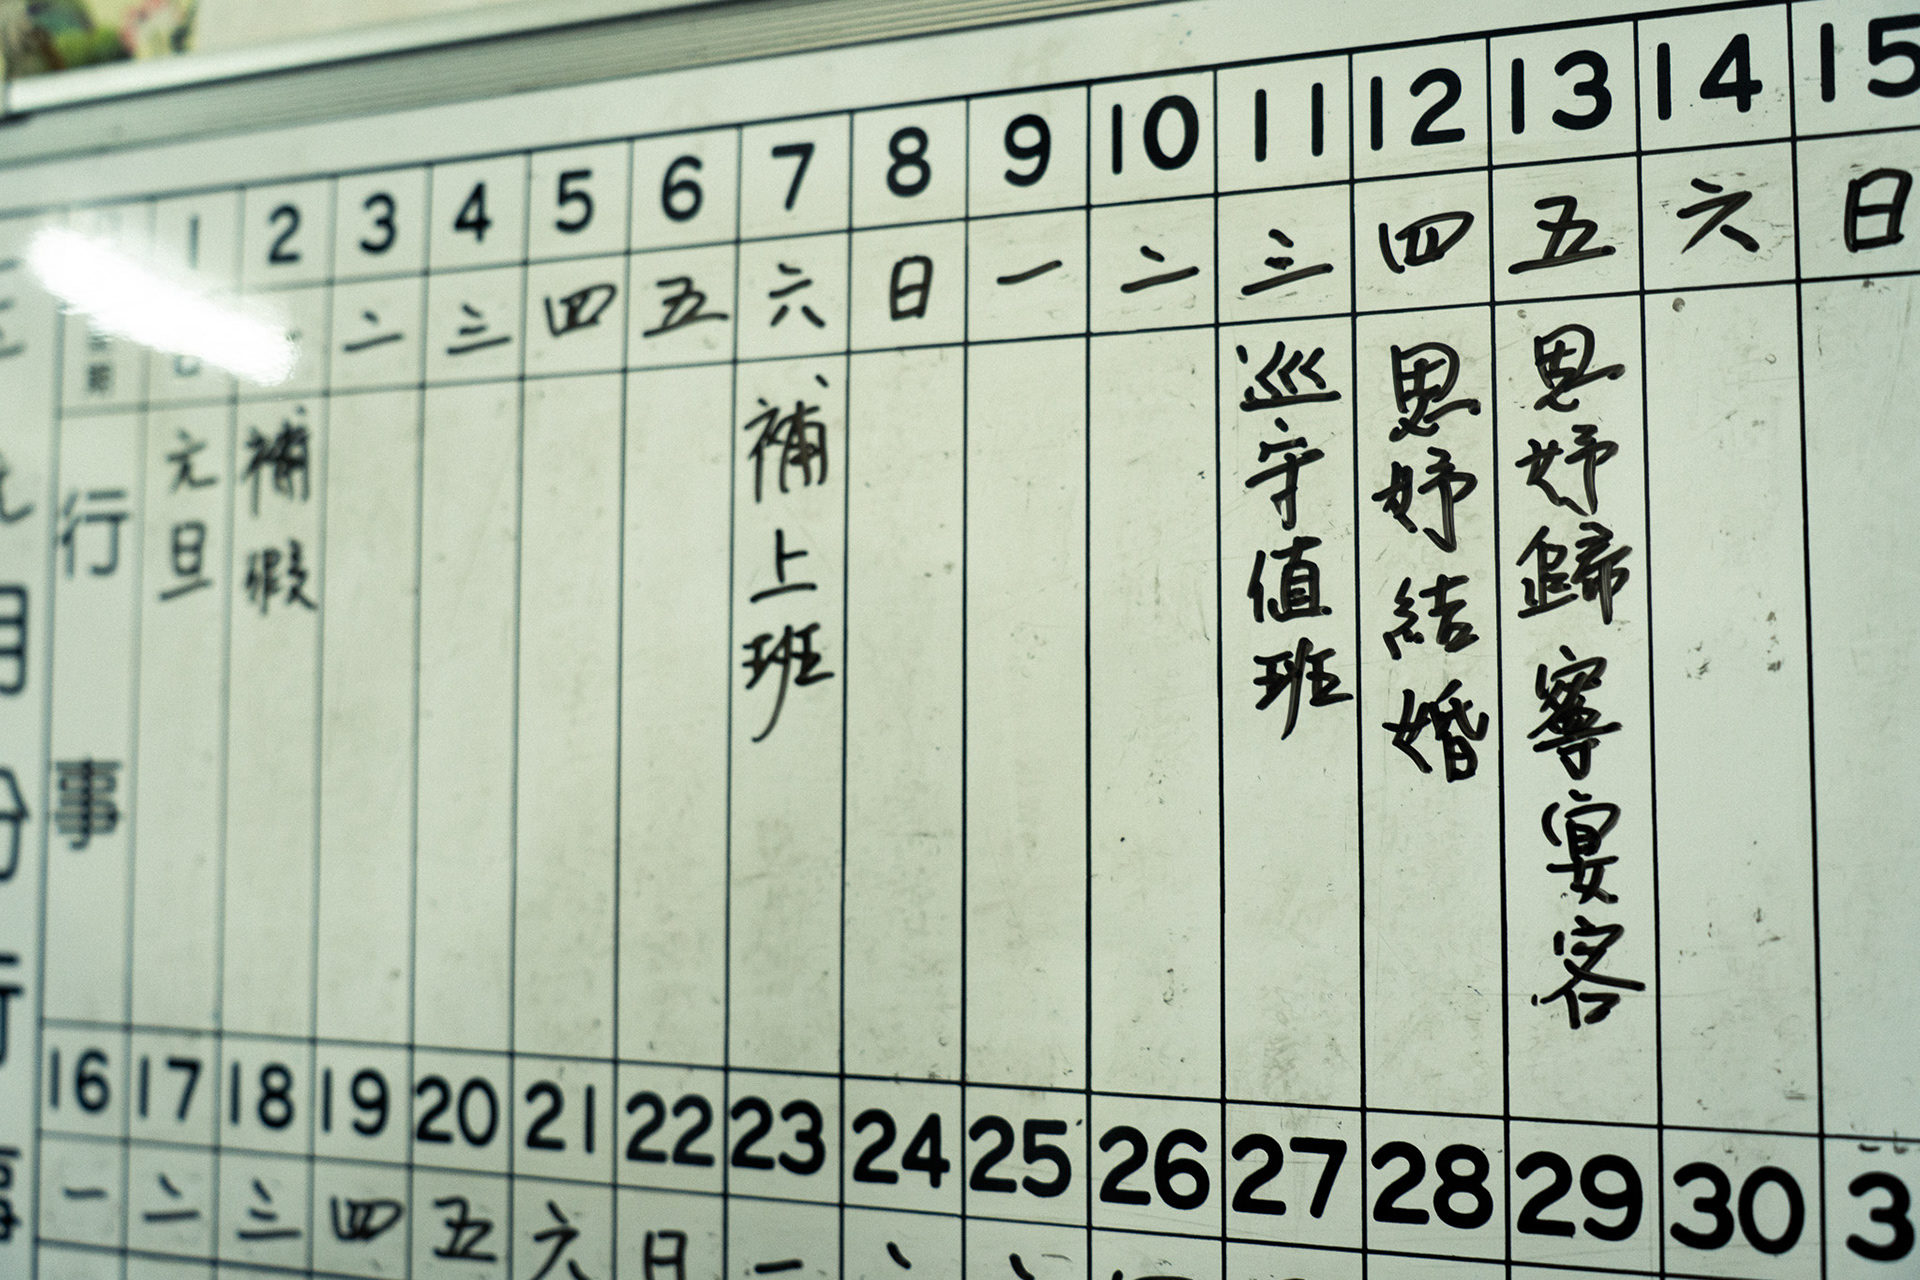 1 2 3 4 5 6 7 8 9 10 11 12 13 14 15
二 三 四 五 六 日 一 二 三 四 五 六 日
行事
元旦
補假
補上班
巡守值班
思妤結婚
思妤歸寧宴客
16 17 18 19 20 21 22 23 24 25 26 27 28 29 30
一 二 三 四 五 六 日 一
月份行事